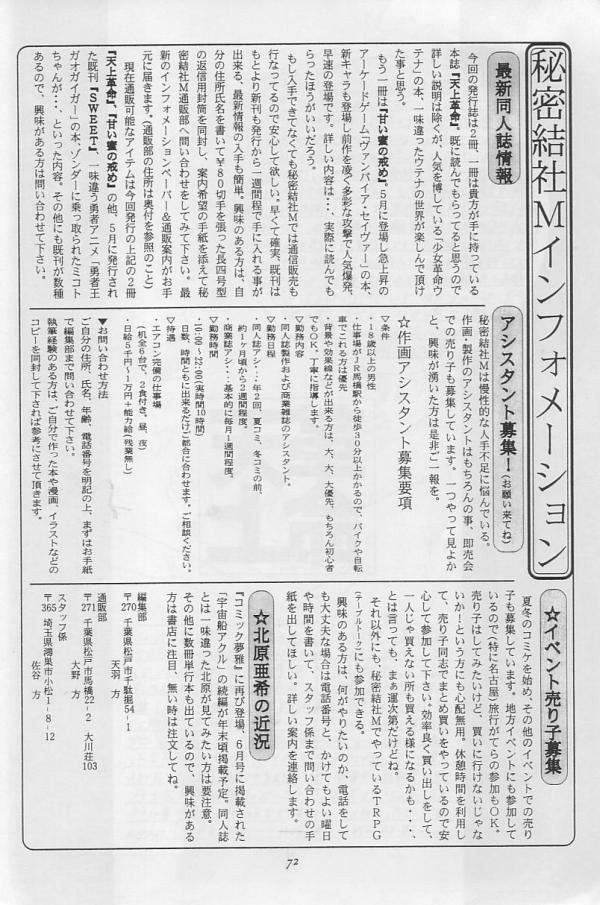 秘密結社Mインフォメーション
最新同人誌情報
今回の発行誌は2冊、一冊は貴方が手に持っている
本誌『天上革命』。既に読んでもらってると思うので
詳しい説明は除くが、人気を博している「少女革命ウ
テナ」の本、一味違ったウテナの世界が楽しんで頂け
た事と思う。
もう一冊は『甘い蜜の戒め』。5月に登場し急上昇の
アーケードゲーム「ヴァンパイア・セイヴァー」の本、
新キャラも登場し前作を凌ぐ多彩な攻撃で人気爆発、
早速の登場です。詳しい内容は・・、実際に読んでも
らったほうがいいだろう。
もし入手できてなくても秘密結社Mでは通信販売も
行なってるので安心して欲しい。早くて確実、既刊は
もとより新刊も発行から一週間程で手に入れる事が
出来る、最新情報の入手も簡単。興味のある方は、自
分の住所氏名を書いて￥80切手を張った長四号型
の返信用封筒を同封し、案内希望の手紙を添えて秘
密結社M通販部へ問い合わせをしてみて下さい。最
新のインフォメーションペーパー&通販案内がお手
元に届きます。(通販部の住所は奥付を参照のこと)
現在通販可能なアイテムは今回発行の上記の2冊
『天上革命』、『甘い蜜の戒め』の他、5月に発行され
た既刊『SWEET』、一味違う勇者アニメ「勇者王
ガオガイガー」の本、ゾンダーに乗っ取られたミコト
ちゃんが・・、といった内容。その他にも既刊が数種
あるので、興味がある方は問い合わせて下さい。
アシスタント募集!(お願い来てね)
秘密結社Mは慢性的な人手不足に悩んでいる。
作画・製作のアシスタントはもちろんの事、即売会
での売り子も募集しています。一つやって見よか
と、興味が湧いた方は是非ご一報を。
☆作画アシスタント募集要項
▽条件
・18歳以上の男性
・仕事場がJR馬橋駅から徒歩30分以上かかるので、バイクや自転
車でこれる方は優先
・背景や効果線などが出来る方は、大、大、大優先。もちろん初心者
でもOK、丁寧に指導します。
▽勤務内容
・同人誌製作および商業雑誌のアシスタント。
▽勤務日程
・同人誌アシ・・・年2回、夏コミ、冬コミの前、
約1ケ月頃から2週間程度。
・商業誌アシ・・・基本的に毎月1週間程度。
▽勤務時間
・10:00〜22:00(実時間10時間)
日数、時間ともに出来るだけご都合に合わせます。ご相談ください。
▽待遇
・エアコン完備の仕事場
(机全6台で、2食付き。昼、夜)
・日給5千円〜1万円+能力給(残業無し)
▼お問い合わせ方法
ご自分の住所、氏名、年齢、電話番号を明記の上、まずはお手紙
で編集部まで問い合わせて下さい。
執筆経験のある方は、ご自分で作った本や漫画、イラストなどの
コピーを同封して下されば参考にさせて頂きます。
☆イベント売り子募集
夏冬のコミケを始め、その他のイベントでの売り
子も募集しています。地方イベントにも参加して
いるので(特に名古屋)旅行がてらの参加もOK。
売り子はしてみたいけど、買いに行けないじゃな
いか!という方にも心配無用。休憩時間を利用し
て、売り子同志でまとめ買いをやっているので安
心して参加して下さい。効率良く買い出しをして、
一人じゃ買えない所も買える様になるかも・・・、
とは言っても、まぁ運次第だけどね。
それ以外にも、秘密結社MでやっているTRPG
(テーブルトーク)にも参加できる。
興味のある方は、何がやりたいのか、電話をして
も大丈夫な場合は電話番号と、かけてもよい曜日
や時間を書いて、スタッフ係まで問い合わせの手
紙を出してほしい。詳しい案内を連絡します。
☆北原亜希の近況
『コミック夢雅』に再び登場、6月号に掲載された
「宇宙船アクル」の続編が年末頃掲載予定。同人誌
とは一味違った北原が見てみたい方は要注意。
その他に数冊単行本も出ているので、興味がある
方は書店に注目、無い時は注文してね。
編集部
〒270 千葉県松戸市千駄堀54-1
天羽 方
通販部
〒271 千葉県松戸市馬橋22-2 大川荘103
大野 方
スタッフ係
〒365 埼玉県鴻巣市小松1-8-12
佐谷 方
72